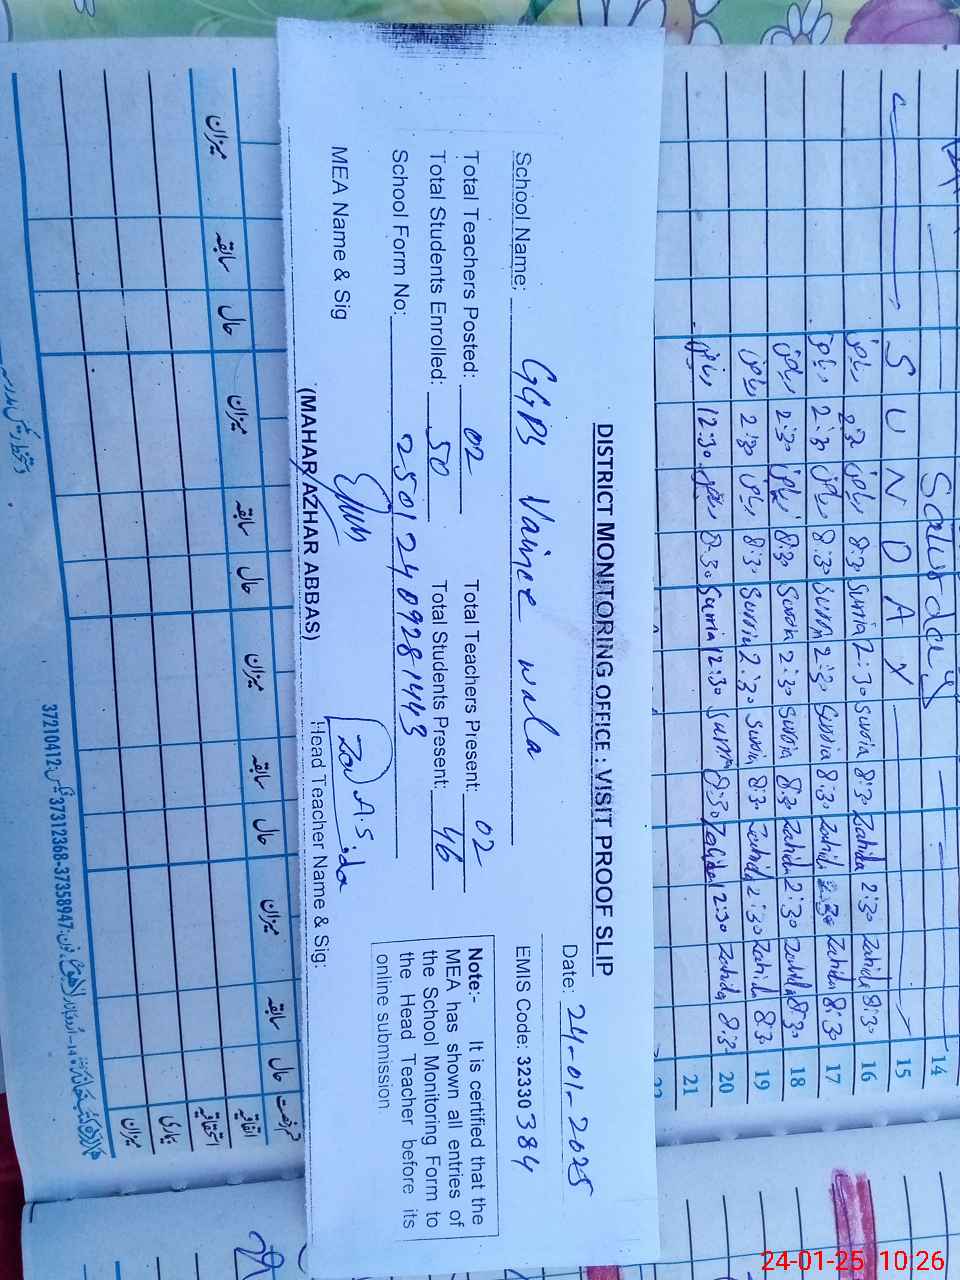 DISTRICT MONITORING OFFICE : VISIT PROOF SLIP
Date: 24-01-2025
School Name: GGPS Vaince wala
EMIS Code: 32330384
Total Teachers Posted: 02 Total Teachers Present: 02
Total Students Enrolled: 50 Total Students Present: 46
School Form No: 25012409281443
Note:- It is certified that the MEA has shown all entries of the School Monitoring Form to the Head Teacher before its online submission
MEA Name & Sig
(MAHAR AZHAR ABBAS)
Head Teacher Name & Sig:
Saturday 14
SUNDAY 15
2:30 8:30 Surria 2:30 Surria 8:30 Zahida 2:30 Zahida 8:30 16
2:30 8:30 Surria 2:30 Surria 8:30 Zahida 2:30 Zahida 8:30 17
2:30 8:30 Surria 2:30 Surria 8:30 Zahida 2:30 Zahida 8:30 18
2:30 8:30 Surria 2:30 Surria 8:30 Zahida 2:30 Zahida 8:30 19
12:30 8:30 Surria 12:30 Surria 8:30 Zahida 12:30 Zahida 8:30 20
21
22
میزان سابقہ حال میزان سابقہ حال میزان سابقہ حال میزان سابقہ حال
اتفاقیہ
استحقاقیہ
بیماری
میزان
37210412 37312368-37358947
24-01-25 10:26